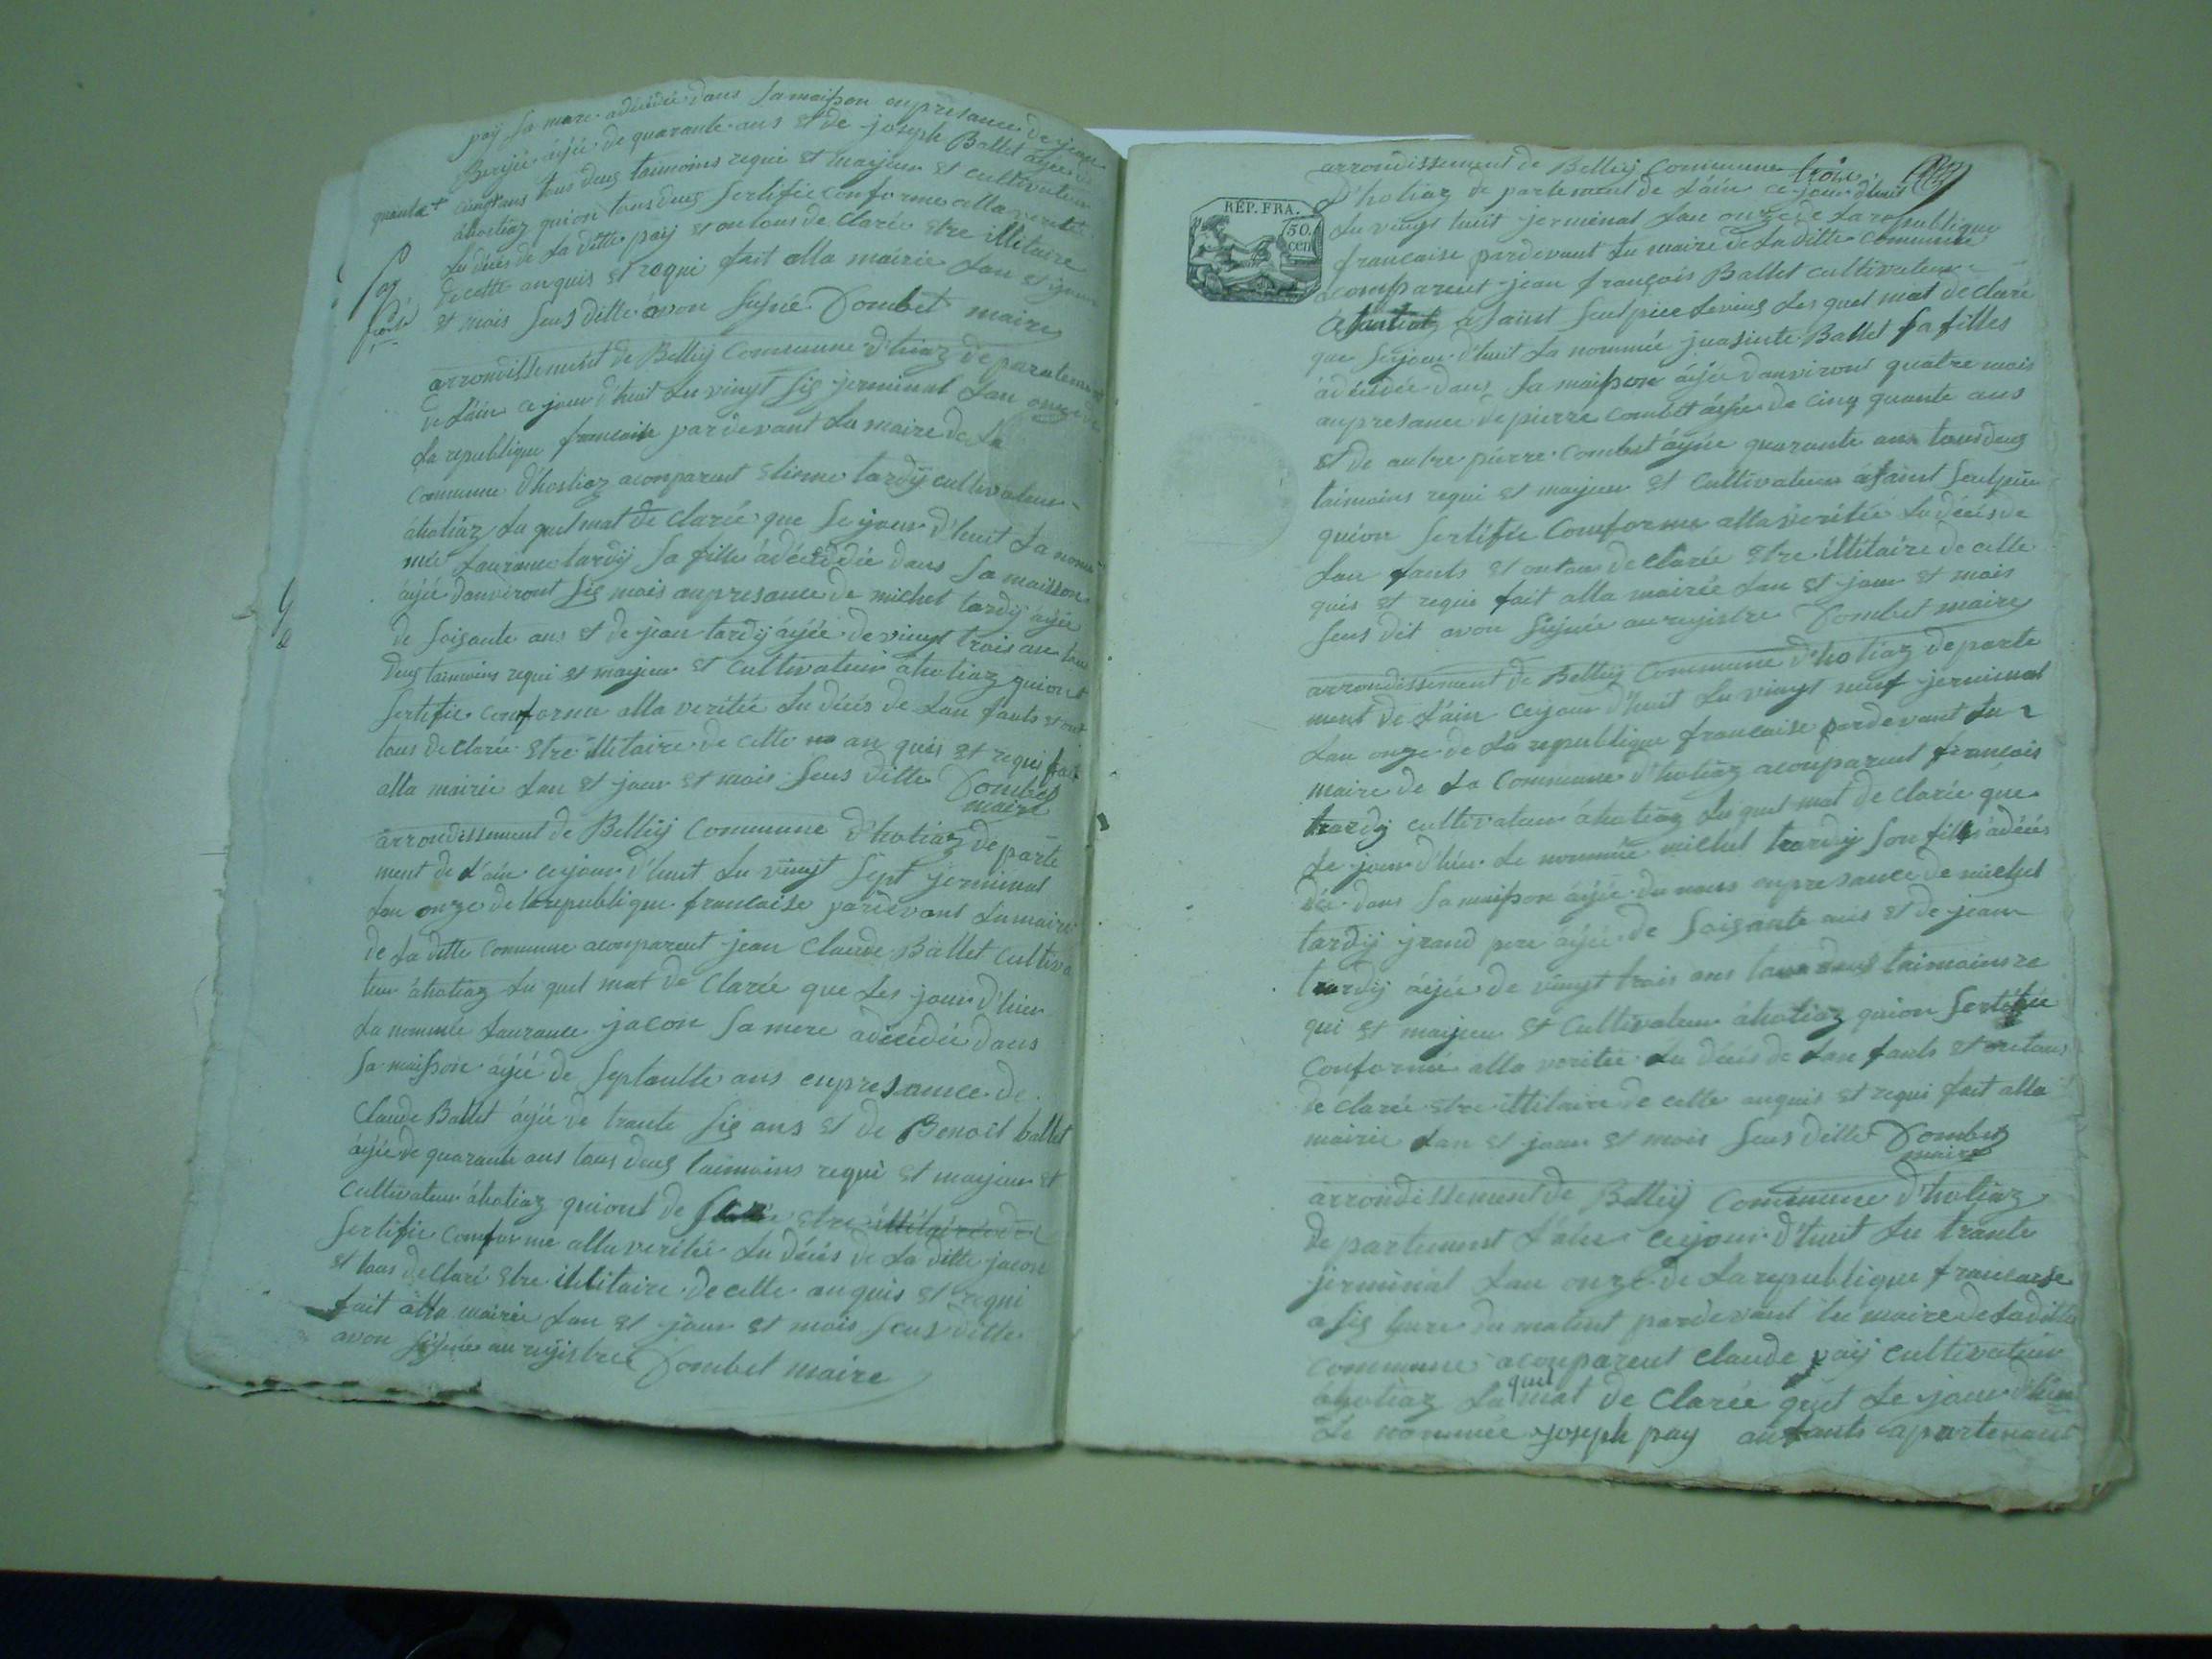 pay sa mere adécédée dans sa maison enpresance de jean
Berjié ájée de quarante ans et de joseph Ballet ájée de
quante + cinq ans tous deus taimoins requi et majeur et cultivateur
áhostiaz quion tous deus sertifié conforme alla veritée
du déces de la ditte pay et on tous de clarée etre illitaire
de cette anquis et requi fait alla mairie lan et jour
et mois sus ditte avon sujné Dombet maire
arrondissement de Belleij Commune d'hiaz departement
de L'ain ce jour d'huit du vingt sis jerminal Lan onze de
La republique francaise pardevant Lu maire de La
Commune d'hostiaz aconparent etienne tardij cultivateur
áhotiaz Lu quel mat de clarée que se jour d'huit La nomm
mée Laurance tardij sa fille ádécédée dans sa maison
ájée danviront sis mois anpresance de michel tardij ájée
de soisante ans et de jean tardij ájée de vingt trois ans tous
deus taimoins requi et majeur et Cultivateur áhotiaz quiont
sertifie conforme alla veritée du déces de Lan fants et ont
tous declarée etre illitaire de cette an quis et requi fait
alla mairie Lan et jour et mois sus ditte Dombet
maire
arrondissement de Belleij Commune d'hotiaz departe
ment de L'ain cejour d'huit Lu vingt sept jerminal
Lan onze de la republique francaise pardevant Lu maire
de La ditte Commune aconparent jean Claude Ballet Cultiva
teur áhotiaz Lu quel mat de Clarée que Les jour d'hier
La nommée Laurance jacon sa mere adécédée dans
sa maison ájée de septante ans enpresance de
Claude Ballet ájée de trante sis ans et de Benoit ballet
ájée de quarante ans tous deus taimoins requi et majeur et
Cultivateur áhotiaz quiont de etre illitaire de
sertifie Comforme alla veritée du déces de La ditte jacon
et tous declaré etre illitaire de cette anquis et requi
fait alla mairie Lan et jour et mois sus ditte
avon sijnée au rejistre Dombet maire
arrondissement de Belleij Commune trois
RÉP. FRA.
50
cen
d'hotiaz de partement de L'ain ce jour d'huit
Lu vingt huit jerminal Lan onze de La republique
francaise pardevant Lu maire de La ditte Commune
aconparent jean francois Ballet cultivateur
a saint sulpice Levieus Les quel mat de claré
que sejour d'huit La nommée juasinte Ballet sa filles
ádécédée dans sa maison ájée danviront quatre mois
anpresance de pierre combet ájée de cinq quante ans
et de autre pierre Combet ájée quarante ans tous deus
taimoins requi et majeur et Cultivateur ásaint sulpice
quion sertifie Comforme alla veritée du déces de
Lan fants et on tous de clarée etre illitaire de cette
quis et requi fait alla mairie Lan et jour et mois
sus dit avon sijnée au rejistre Dombet maire
arrondissement de Belleij Commune d'hotiaz departe
ment de L'ain cejour d'huit Lu vingt neuf jerminal
Lan onze de La republique francaise pardevant Lu
maire de La Commune d'hotiaz aconparent francois
tardij cultivateur áhotiaz Lu quel mat de clarée que
Le jour d'hier Le nommée michel tardij son fils ádécés
dée dans sa maison ájée du mois enpresance de michel
tardij jrand pere ájée de soisante ans et de jean
tardij ájée de vingt trois ans tous deus taimoins re
qui et majeur et Cultivateur áhotiaz quion sertifie
Conformée alla veritée du déces de Lan fants et on tous
de clarée etre illitaire de cette anquis et requi fait alla
mairie Lan et jour et mois sus ditte Dombet
maire
arrondissement de Belleij Commune d'hotiaz
de partement L'ain cejour d'huit Lu trante
jerminal Lan onze de La republique francaise
a sis hure du matint pardevant Lu maire de La ditte
Commune aconparent Claude paij Cultivateur
áhotiaz Lu quel mat de Clarée quet Le jour d'hier
Le nommée joseph pay anfants apartenant